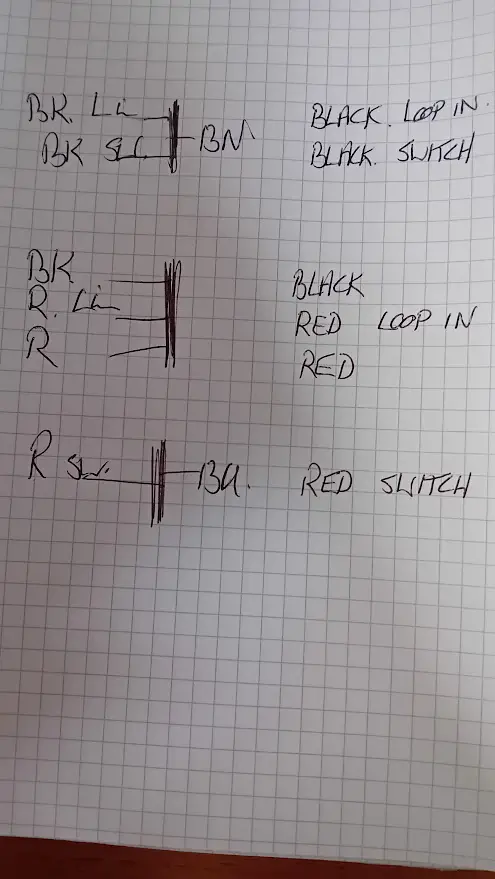 BK. Li BN BLACK. LOOP IN.
BK SW. BLACK. SWITCH
BK BLACK
R. Li RED LOOP IN
R RED
R SW. BU. RED SWITCH